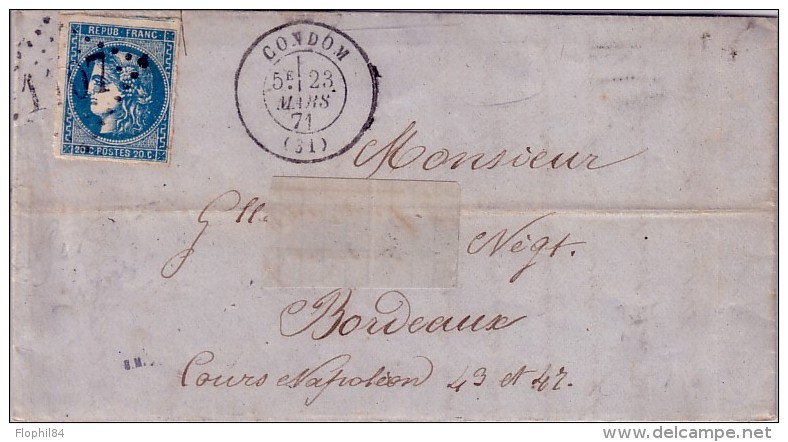 REPUB. FRANC.
20 C POSTES 20 C
CONDOM
5E 23
MARS
71
(31)
Monsieur
Négt.
Bordeaux
Cours Napoléon 43 et 47.
B.M.
Flophil84
www.delcampe.net